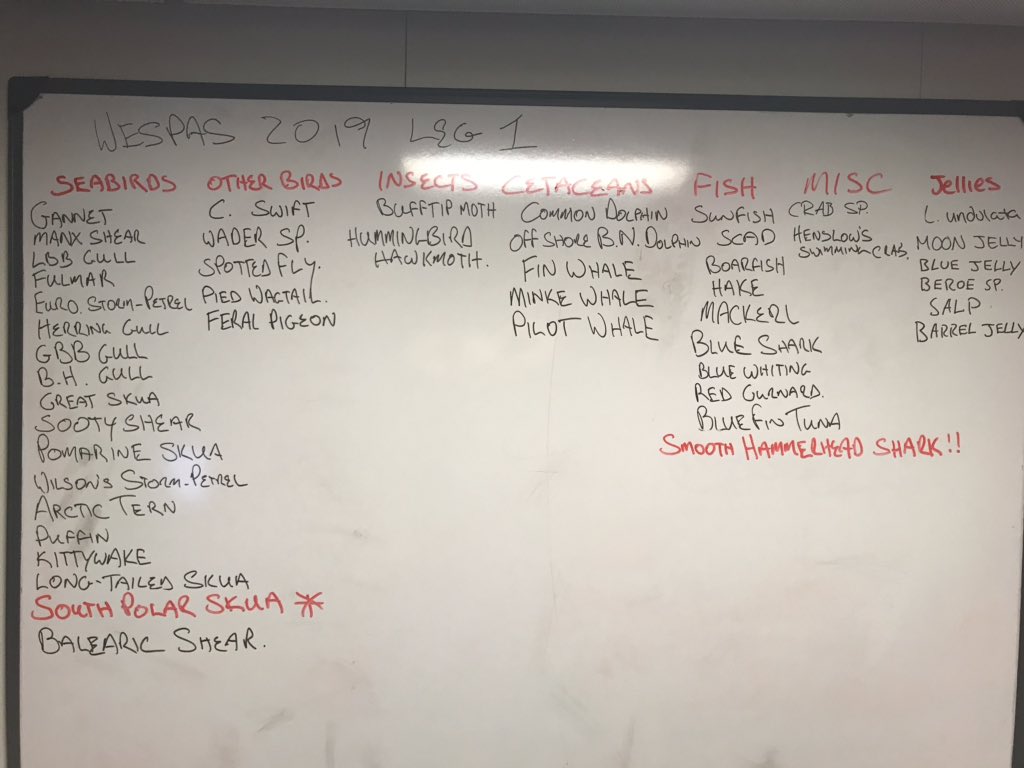 WESPAS 2019 LEG 1
SEABIRDS
GANNET
MANX SHEAR
LBB GULL
FULMAR
EURO. STORM-PETREL
HERRING GULL
GBB GULL
B.H. GULL
GREAT SKUA
SOOTY SHEAR
POMARINE SKUA
WILSON'S STORM-PETREL
ARCTIC TERN
PUFFIN
KITTYWAKE
LONG-TAILED SKUA
SOUTH POLAR SKUA *
BALEARIC SHEAR.
OTHER BIRDS
C. SWIFT
WADER SP.
SPOTTED FLY.
PIED WAGTAIL.
FERAL PIGEON
INSECTS
BUFFTIP MOTH
HUMMINGBIRD
HAWKMOTH.
CETACEANS
COMMON DOLPHIN
OFFSHORE B.N. DOLPHIN
FIN WHALE
MINKE WHALE
PILOT WHALE
FISH
SUNFISH
SCAD
BOARFISH
HAKE
MACKERL
BLUE SHARK
BLUE WHITING
RED GURNARD.
BLUEFIN TUNA
SMOOTH HAMMERHEAD SHARK!!
MISC
CRAB SP.
HENSLOW'S
SWIMMING CRAB.
Jellies
L. undulata
MOON JELLY
BLUE JELLY
BEROE SP.
SALP
BARREL JELLY